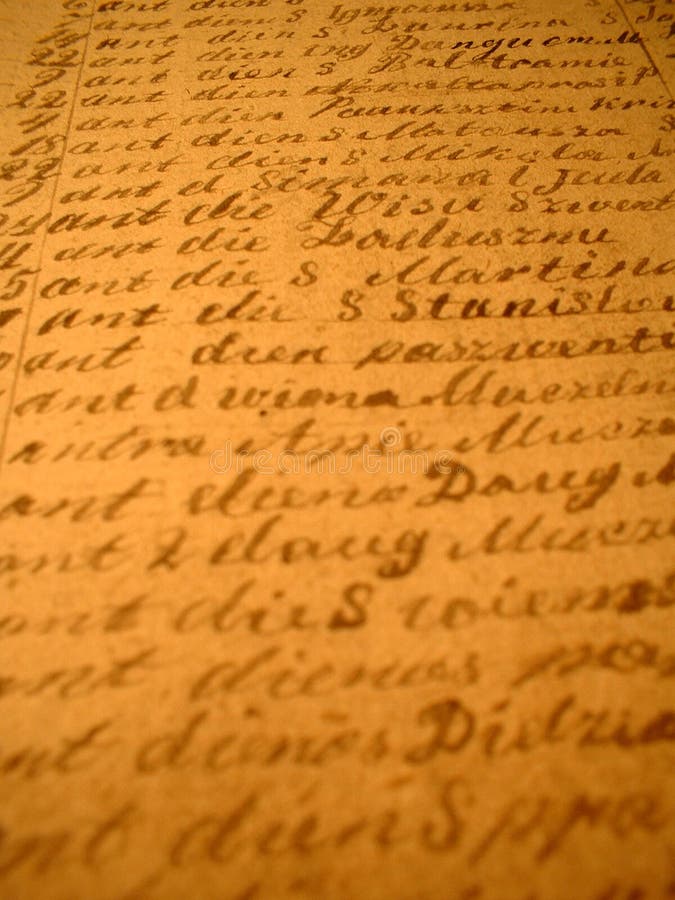 ant dien S Ignociusza
18 ant dien S Laurina S
22 ant dien ing Danguem M
9 ant dien S Baltramie
22 ant dien
4 ant dien
18 ant dien S Matausza S
22 ant dien S Mikola
9 ant d Simana l Juda
ant die Wisu Szwent
4 ant die Zadusznu
5 ant die S Martina
ant die S Stanislow
ant dien paszwenti
ant d wiena Muczeln
antra Mucze
ant diena Daug M
ant 2 daug Mucze
ant die S wiems
ant dienos pa
ant dienos Didzia
ant dien S pra
dreamstime